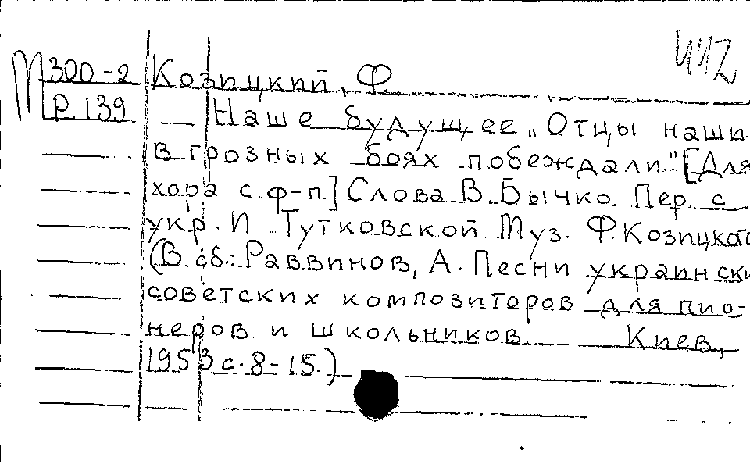 442
М300-2 Козицкий, Ф
Р.139 Наше будущее „Отцы наши
в грозных боях побеждали" [Для
хора с ф-п.] Слова В. Бычко. Пер. с
укр. И. Тутковской Муз. Ф. Козицкого
(В сб.: Раввинов, А. Песни украински
советских композиторов для пио-
неров и школьников Киев,
1953 с. 8-15.)